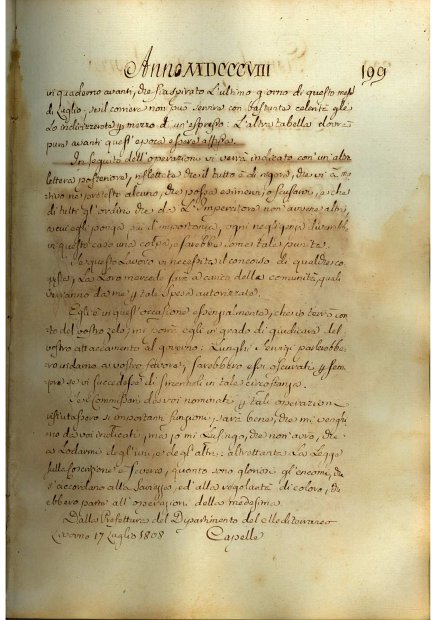 Anno MDCCCVIII 199
in quaderno avanti, che sia spirato l'ultimo giorno di questo mese
di Luglio, se il corriere non può servire con bastante celerità gle
Lo indirizzerete p mezzo di un'espresso: L'altra tabella dovrà
pure avanti quest'epoca essere affissa.
In seguito dell'operazione vi verrà indicato con un'altra
lettera posteriore, riflettete che il tutto è di rigore, che vi è mo
tivo ne pretesto alcuno, che possa esimervi, o scusarvi, e che
di tutti gl'ordini che dà L'Imperatore non avvene altri,
a cui egli ponga più d'importanza, ogni negligenza diverebbe
in questo caso una colpa, e sarebbe come tale punita.
Se questo Lavoro vi necessita il concorso di qualche co
la Loro mercede sarà a carico della comunità, quali
verranno da me p tali spese autorizzate.
Egli è in quest'occasione essenzialmente, che io terrò con
to del vostro zelo, mi come egli in grado di giudicare del
vostro attaccamento al governo: Lunghi servizi parlerebbe
ro in vostro favore, sarebbero essi oscurati p sem
pre se vi succedesse di in tale circostanza.
Se i Commissari da voi nominati p tali operazioni
si importanti funzioni, sarà bene, che mi venghi
no da voi indicati, ma io mi Lusingo, che non avrò, che
a Lodarmi degl'uni, e degl'altri: altrettanto La Legge
sulla coscrizione è severa, quanto sono gloriosi gl'encomi, che
s'accordano alla saviezza, ed'alla regolarità di coloro, che
ebbero parte all'operazioni della medesima
Dalla Prefettura del Dipartimento del Mediterraneo
Livorno 17 Luglio 1808 Capelle